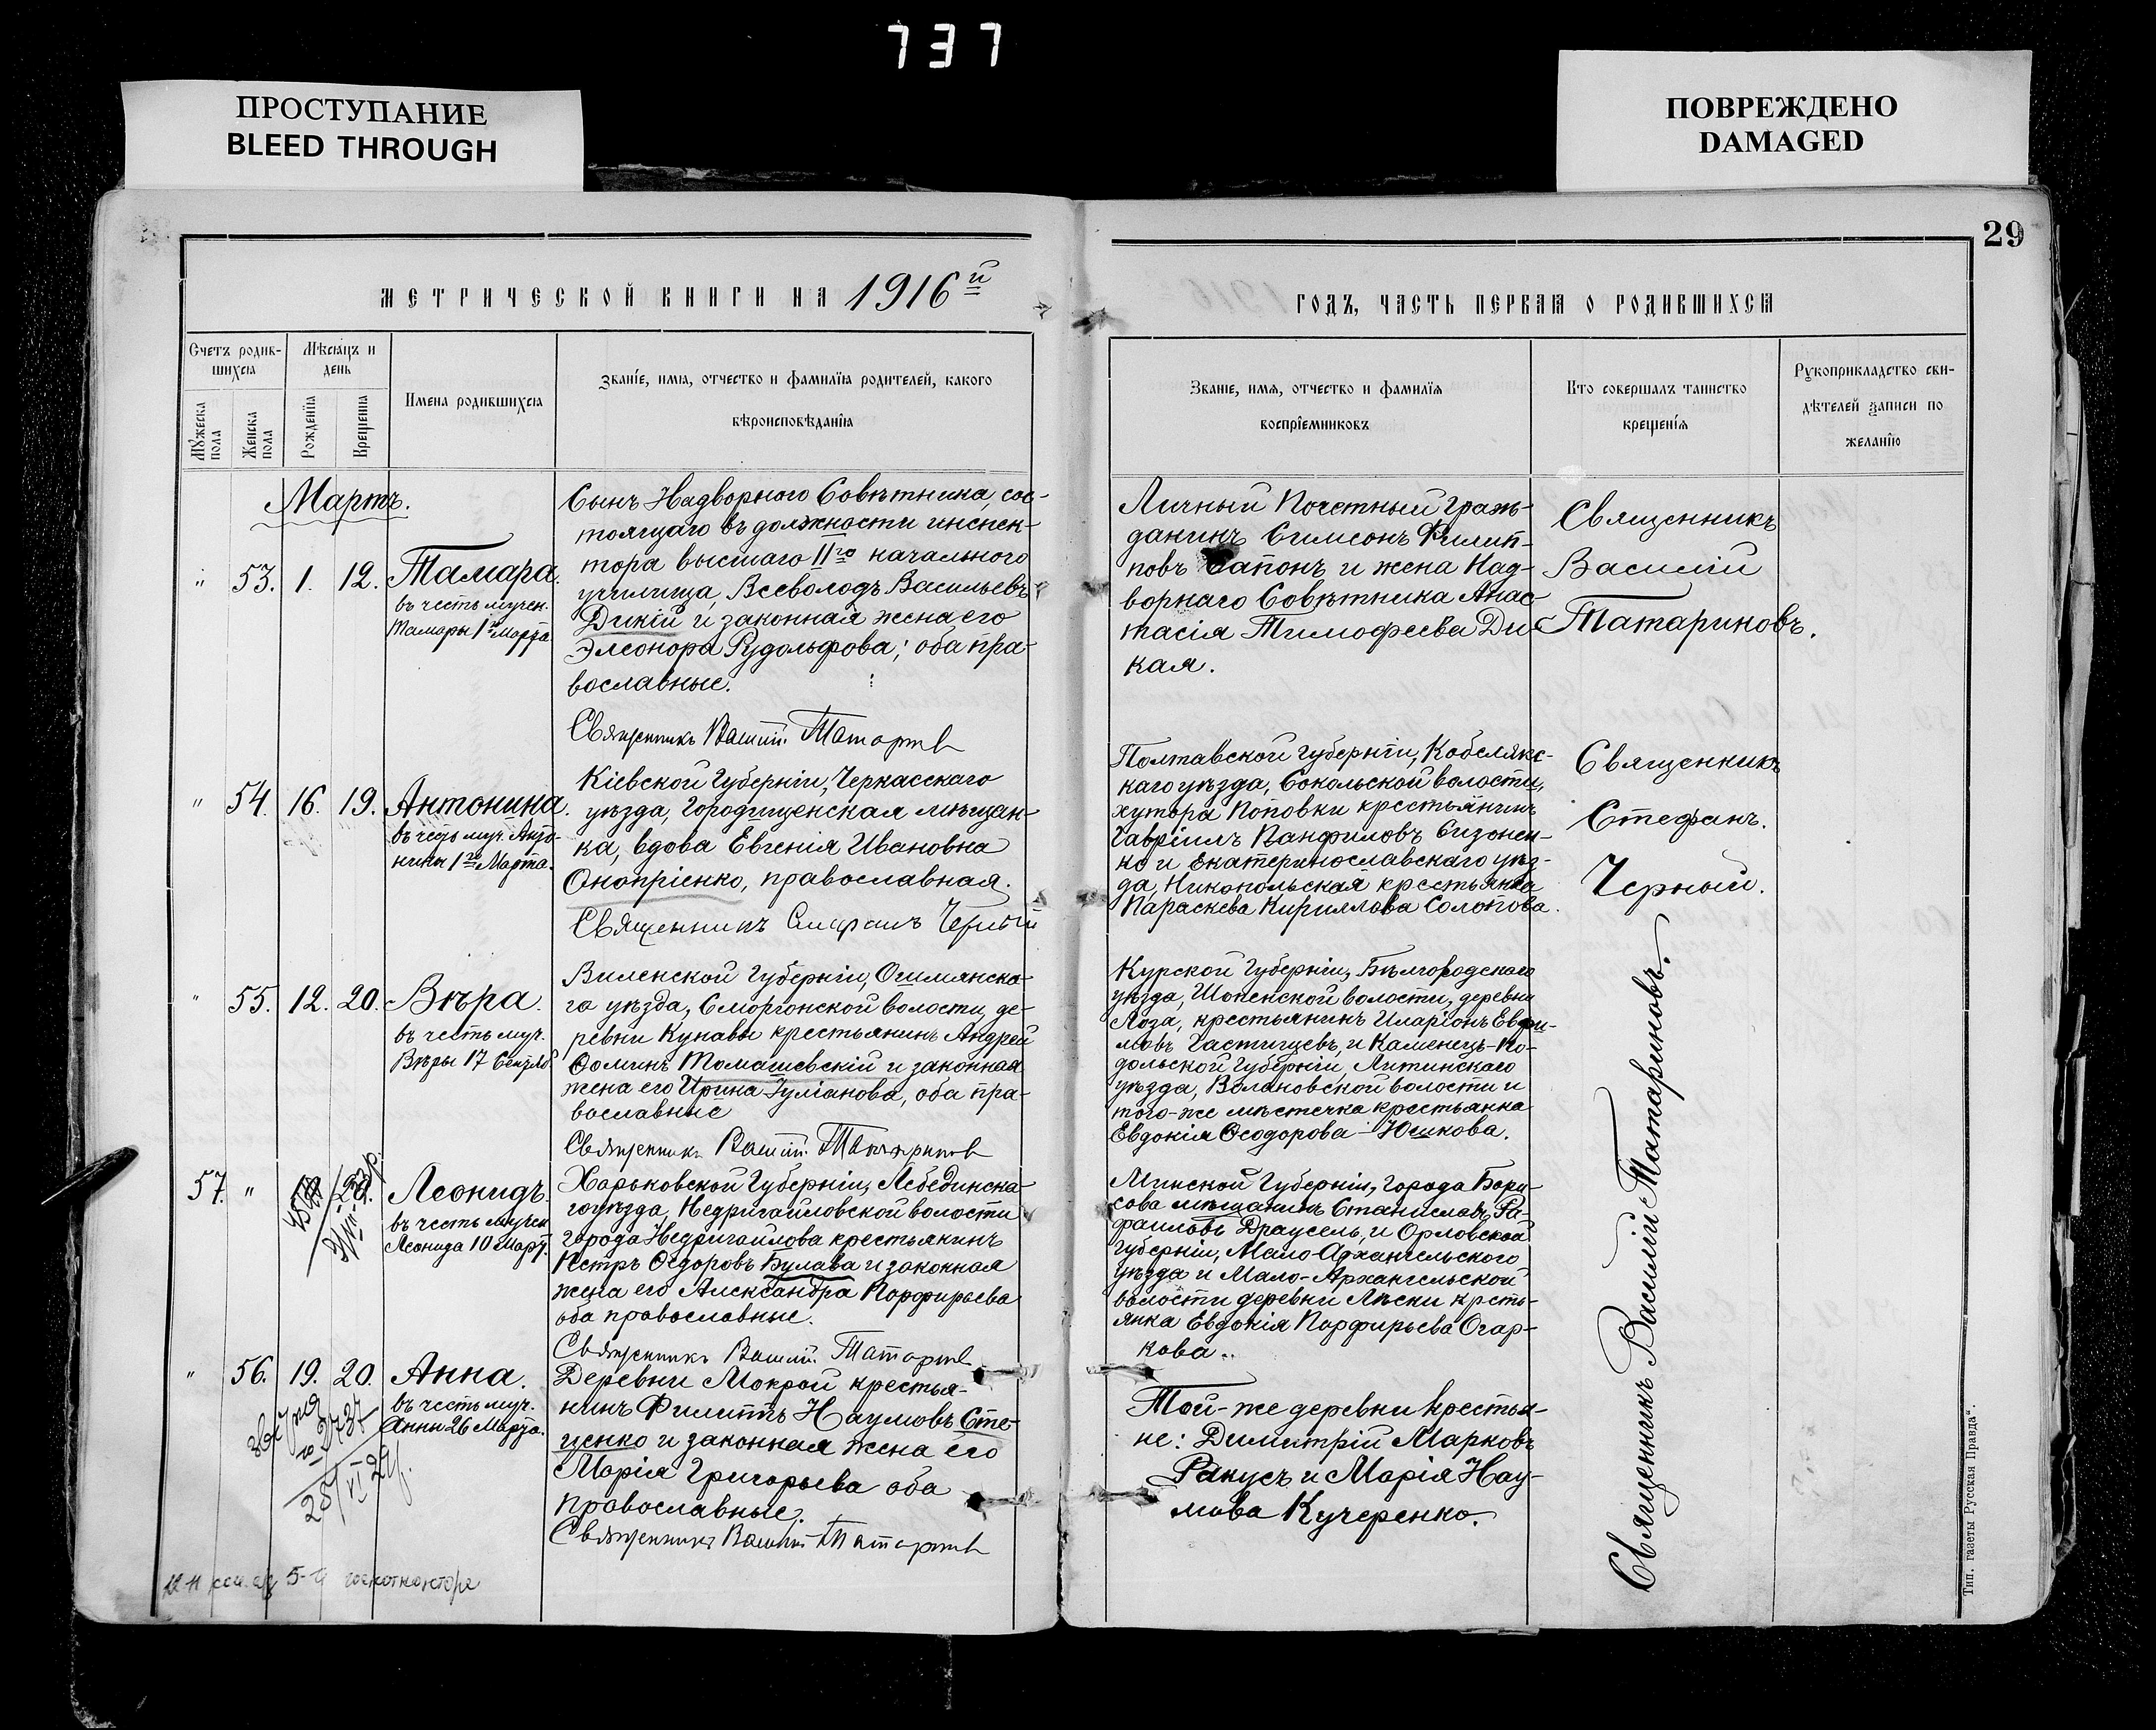 737
ПРОСТУПАНИЕ
BLEED THROUGH
ПОВРЕЖДЕНО
DAMAGED
29
МЕТРИЧЕСКОЙ КНИГИ НА 1916й
ГОДЪ, ЧАСТЬ ПЕРВАЯ О РОДИВШИХСЯ
Счетъ родив-
шихся
Мужеска пола
Женска пола
Мѣсяцъ и
день
Рожденїя
Крещенїя
Имена родившихся
Званїе, имя, отчество и фамилїя родителей, какого
вѣроисповѣданїя
Званїе, имя, отчество и фамилїя
воспрїемниковъ
Кто совершалъ таинство
крещенїя
Рукоприкладство сви-
дѣтелей записи по
желанїю
Мартъ.
" 53. 1. 12. Тамара.
въ честь мучен.
Тамары 1го Марта
Сынъ Надворного Совѣтника, сос-
тоящаго въ должности инспек-
тора высшаго IIго начального
училища, Всеволодъ Васильевъ
Дикій и законная жена его
Элеонора Рудольфова; оба пра-
вославные.
Священникъ Татарин
Личный Почетный Граж-
данинъ Симеонъ Филип-
повъ Сапонъ и жена Над-
ворнаго Совѣтника Анас-
тасія Тимофеева Ди-
кая.
Священникъ
Василій
Татариновъ.
" 54. 16. 19. Антонина.
въ честь муч. Анто-
нины 1го Марта.
Кіевской Губерніи, Черкасскаго
уѣзда, Городищенская мѣщан-
ка, вдова Евгенія Ивановна
Онопріенко, православная.
Священникъ Стефанъ Черный
Полтавской Губерніи, Кобелякс-
каго уѣзда, Сокольской волости,
хутора Поповки крестьянинъ
Гавріилъ Панфиловъ Сизонен-
ко и Екатеринославскаго уѣз-
да, Никопольская крестьянка
Параскева Кириллова Солопова.
Священникъ
Стефанъ.
Черный.
" 55. 12. 20. Вѣра.
въ честь муч.
Вѣры 17 Сентяб
Виленской Губерніи, Ошмянска-
го уѣзда, Сморгонской волости, де-
ревни Кунавы крестьянинъ Андрей
Ѳоминъ Томашевскій и законная
жена его Ирина Іуліанова, оба пра-
вославные
Священникъ
Курской Губерніи, Бѣлгородского
уѣзда, Шопенской волости, деревни
Лоза, крестьянинъ Иларіонъ Евфи-
мовъ Гастищевъ, и Каменецъ-По-
дольской Губерніи, Литинскаго
уѣзда, Волановской волости и
того-же мѣстечка крестьянка
Евдокія Ѳеодорова Юшкова.
57. " Леонидъ.
въ честь мучен
Леонида 10 Март.
Харьковской Губерніи, Лебединска-
го уѣзда, Недригайловской волости
города Недригайлова крестьянинъ
Петръ Ѳедоровъ Булава и законная
жена его Александра Порфирьева
оба православные.
Священникъ
Минской Губерніи, Города Бори-
сова мѣщанинъ Станиславъ Ра-
фаиловъ Драусель, и Орловской
Губерніи, Мало-Архангельского
уѣзда и Мало-Архангельской
волости деревни Лѣски кресть-
янка Евдокія Порфирьева Огар-
кова.
" 56. 19. 20. Анна.
въ честь муч.
Анны 26 Марта.
Деревни Мокрой крестья-
нинъ Филиппъ Наумовъ Сте-
ценко и законная жена его
Марія Григорьева оба
православные.
Священникъ
Той-же деревни крестья-
не: Димитрій Марковъ
Ракусъ и Марія Нау-
мова Кучеренко.
Священникъ Василій Татариновъ.
Тип. газеты Русская Правда".